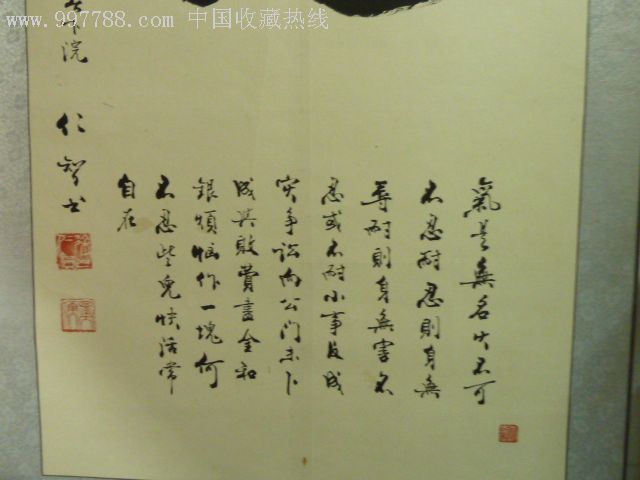 www.997788.com 中国收藏热线
氣是無名火不可
不忍耐忍則身無
辱耐則身無害不
忍或不耐小事反成
突争訟向公门未卜
成與敗賞盡金和
銀煩惱作一塊何
不忍些兒快活常
自在
院
仁智书